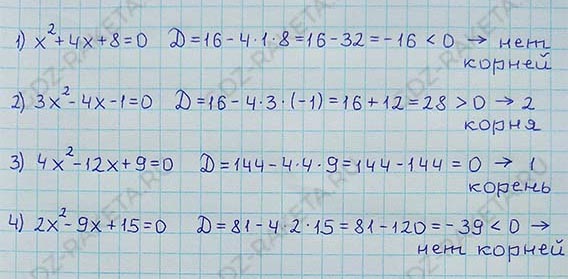 1) x²+4x+8=0 D=16-4·1·8=16-32=-16<0 → нет
корней
2) 3x²-4x-1=0 D=16-4·3·(-1)=16+12=28>0 → 2
корня
3) 4x²-12x+9=0 D=144-4·4·9=144-144=0 → 1
корень
4) 2x²-9x+15=0 D=81-4·2·15=81-120=-39<0 →
нет корней